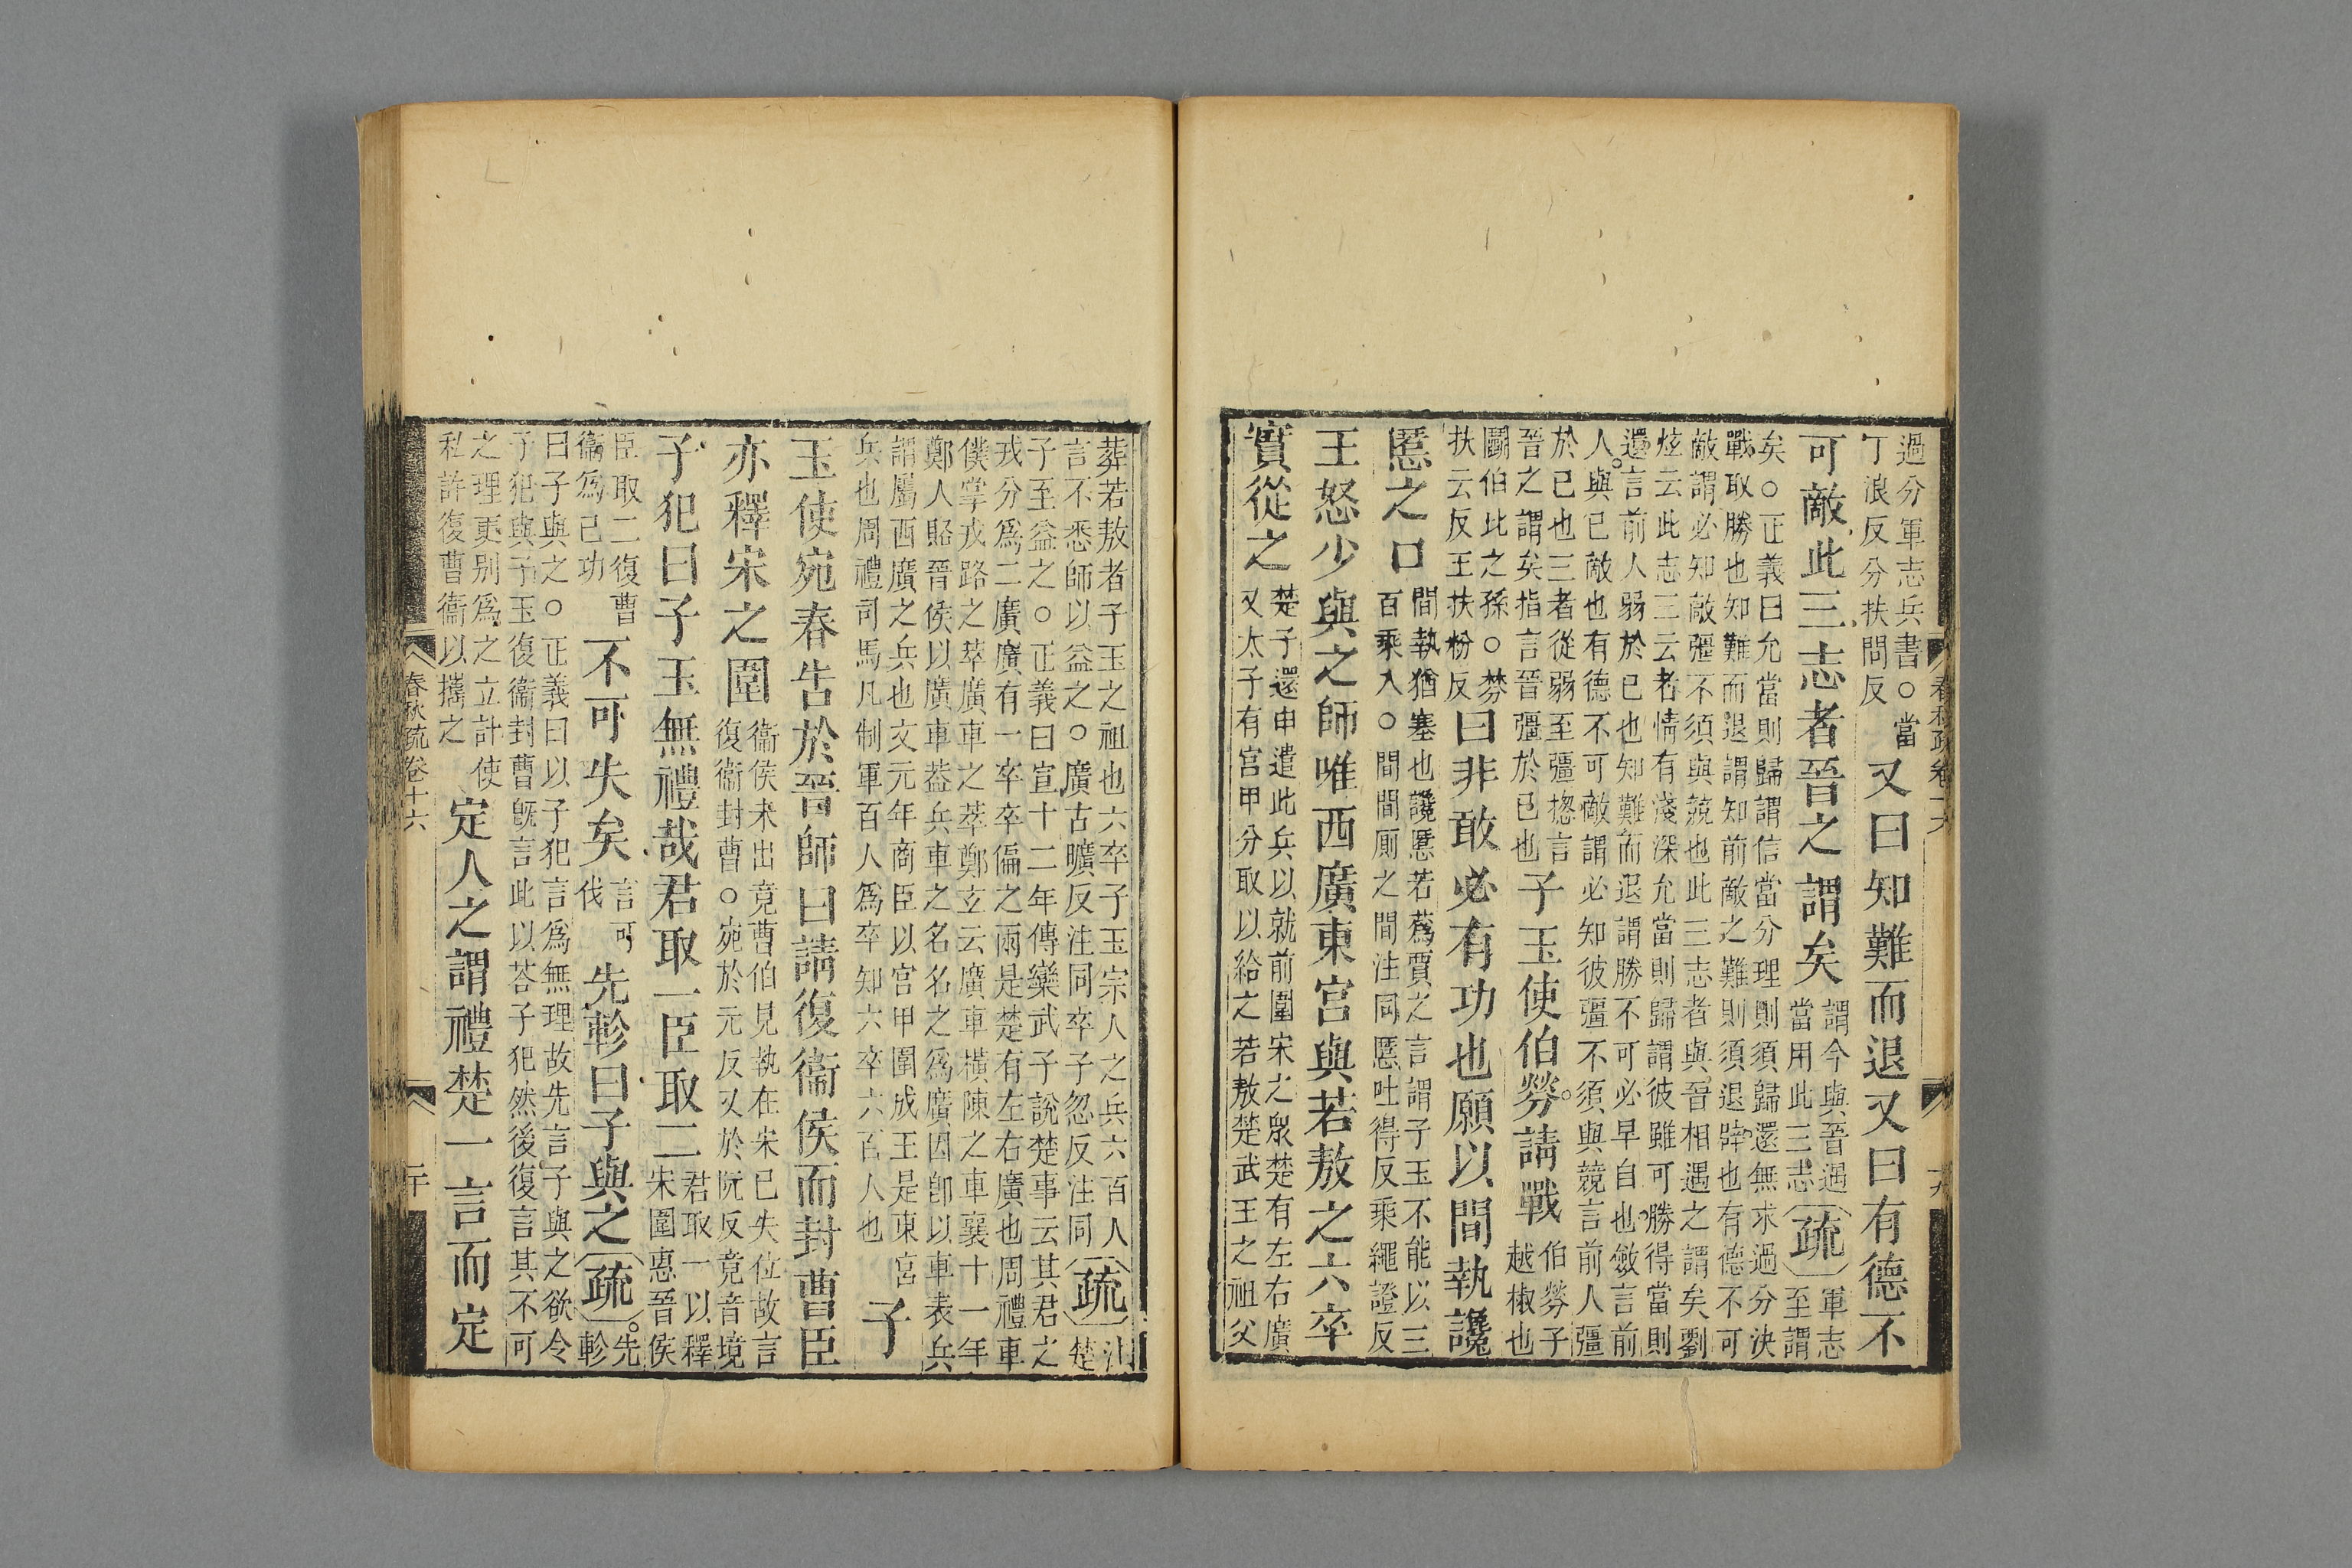 過分軍志兵書○當
丁浪反分扶問反
又曰知難而退又曰有德不
可敵此三志者晉之謂矣
謂今與晉遇
當用此三志
疏
軍志
至謂
矣○正義曰允當則歸謂信當分理則須歸還無求過分決
戰取勝也知難而退謂知前敵之難則須退辟也有德不可
敵謂必知敵彊不須與競也此三志者與晉相遇之謂矣劉
炫云此志三云者情有淺深允當則歸謂彼雖可勝得當則
還言前人弱於已也知難而退謂勝不可必早自也斂言前
人與已敵也有德不可敵謂必知彼彊不須與競言前人彊
於已也三者從弱至彊揔言
晉之謂矣指言晉彊於已也
子玉使伯棼請戰
伯棼子
越椒也
鬬伯比之孫○棼
扶云反王扶粉反
曰非敢必有功也願以間執讒
慝之口
間執猶塞也讒慝若蒍賈之言謂子玉不能以三
百乘入○間間廁之間注同慝吐得反乘繩證反
王怒少與之師唯西廣東宮與若敖之六卒
實從之
楚子還申遣此兵以就前圍宋之衆楚有左右廣
又太子有宮甲分取以給之若敖楚武王之祖父
春秋疏卷十六
十九
葬若敖者子玉之祖也六卒子玉宗人之兵六百人
言不悉師以益之○廣古曠反注同卒子忽反注同
疏
注
楚
子至益之○正義曰宣十二年傳欒武子說楚事云其君之
戎分爲二廣廣有一卒卒偏之兩是楚有左右廣也周禮車
僕掌戎路之萃廣車之萃鄭玄云廣車橫陳之車襄十一年
鄭人賂晉侯以廣車葢兵車之名名之爲廣因卽以車表兵
謂屬西廣之兵也文元年商臣以宮甲圍成王是東宮
兵也周禮司馬凡制軍百人爲卒知六卒六百人也
子
玉使宛春告於晉師曰請復衞侯而封曹臣
亦釋宋之圍
衞侯未出竟曹伯見執在宋已失位故言
復衞封曹○宛於元反又於阮反竟音境
子犯曰子玉無禮哉君取一臣取二
君取一以釋
宋圍惠晉侯
臣取二復曹
衞爲己功
不可失矣
言可
伐
先軫曰子與之
疏
先
軫
曰子與之○正義曰以子犯言爲無理故先言子與之欲令
子犯與子玉復衞封曹旣言此以荅子犯然後復言其不可
之理更别爲之立計使
私許復曹衞以攜之
定人之謂禮楚一言而定
春秋疏卷十六
二十